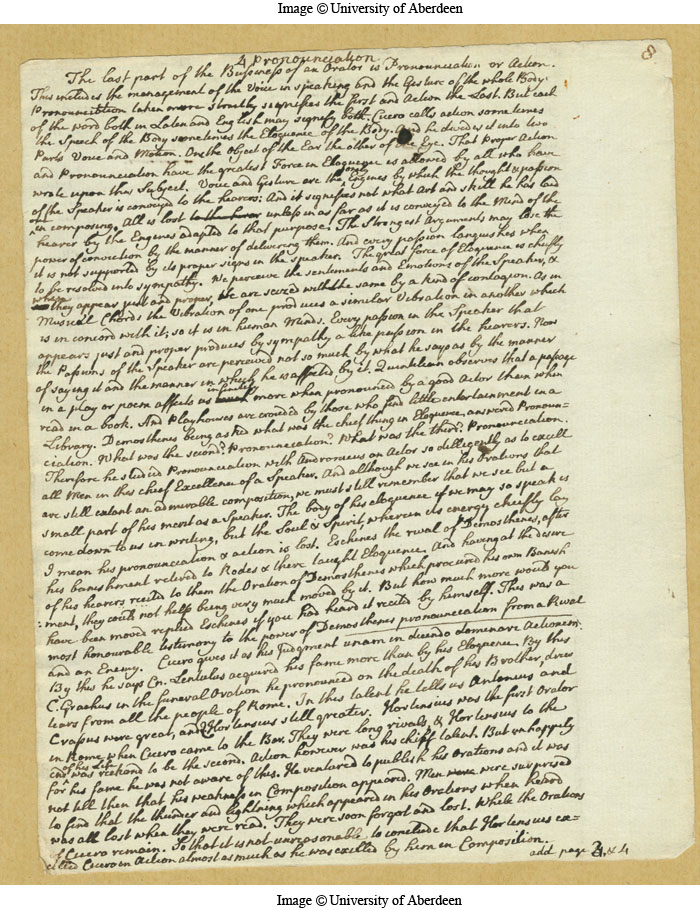 Image © University of Aberdeen
8
4 Pronounciation
The last part of the Business of an Orator is Pronounciation or Action.
This includes the management of the Voice in speaking and the Gesture of the whole Body.
Pronounciation taken more strictly signifies the first and Action the Last. But each
of the word both in Laten and English may signify both. Cicero calls action sometimes
the Speech of the Body sometimes the Eloquence of the Body. And he divides it into two
Parts Voice and Motion. One the object of the Ear the other of the Eye. That Proper Action
and Pronounciation have the greatest Force in Eloquence is allowed by all who have
wrote upon this Subject. Voice and Gesture are the only Engines by which the thought & passion
of the Speaker is conveyed to the hearers. And it signifies not what Art and skill he has laid
in composing. All is lost to the hearer unless in as far as it is conveyed to the Mind of the
hearer by the Engines adapted to that purpose. The Strongest Arguments may lose the
power of conviction by the manner of delivering them. And every passion languishes when
it is not supported by its proper signs in the speaker. The great force of Eloquence is chiefly
to be resolved into sympathy. We perceive the sentements and Emotions of the Speaker, &
when they appear just and proper, we are seized with the same by a kind of contagion. As in
Musical Chords the Vibration of one produces a similar Vibration in another which
is in concord with it; so it is in human Minds. Every passion in the Speaker that
appears just and proper produces by sympathy a like passion in the hearers. Now
the Passions of the Speaker are perceived not so much by what he says as by the manner
of saying it and the manner in which he is affected by it. Quintilean observes that a passage
in a play or poem affects us much infinitely more when pronounced by a good Actor then when
read in a book. And Playhouses are crouded by those who find little entertainment in a
Library. Demosthenes being asked what was the chief thing in Eloquence, answered Pronoun=
ciation. What was the second? Pronounciation? What was the third? Pronounciation.
Therefore he studied Pronounciation with Andronicus an Actor so dilligently as to excell
all Men in this chief Excellence of a Speaker. And although we see in his Orations that
are still extant an admirable composition, we must still remember that we see but a
small part of his merit as a Speaker. The body of his eloquence if we may so speak is
come down to us in writing, but the Soul & Spirit, wherein its energy chiefly lay
I mean his pronounciation & action is lost. Eschines the rival of Demosthenes, after
his banishment retired to Rodes & there taught Eloquence. And having at the desire
of his hearers recited to them the Oration of Demosthenes which procured his own Banish
:ment, they could not help being very much moved by it. But how much more would you
have been moved replied Eschines if you had heard it recited by himself. This was a
most honourable testimony to the power of Demosthenes pronounciation from a Rival
and an Enemy. Cicero gives it as his Judgment unam in dicendo dominare Actionem.
By this he says Cn. Lentulus acquired his fame more than by his Eloquence. By this
C. Grachus in the funeral Oration he pronounced on the death of his Brother, drew
tears from all the people of Rome. In this talent he tells us Antonius and
Crassus were great, and Hortensius still greater. Hortensius was the first Orator
in Rome when Cicero came to the Bar. They were long rivals, & Hortensius to the
end of his Life was reckond to be the second. Action however was his chief talent. But unhappily
for his fame he was not aware of this. He ventured to publish his Orations and it was
not till then that his weakness in Composition appeared. Men were were surprised
to find that the thunder and lightning which appeared in his Orations when heard
was all lost when they were read. They were soon forgot and lost. While the Orations
of Cicero remain. So that it is not unreasonable to conclude that Hortensius ex=
celled Cicero in Action almost as much as he was excelled by him in Composition.
add page 3, & 4
Image © University of Aberdeen